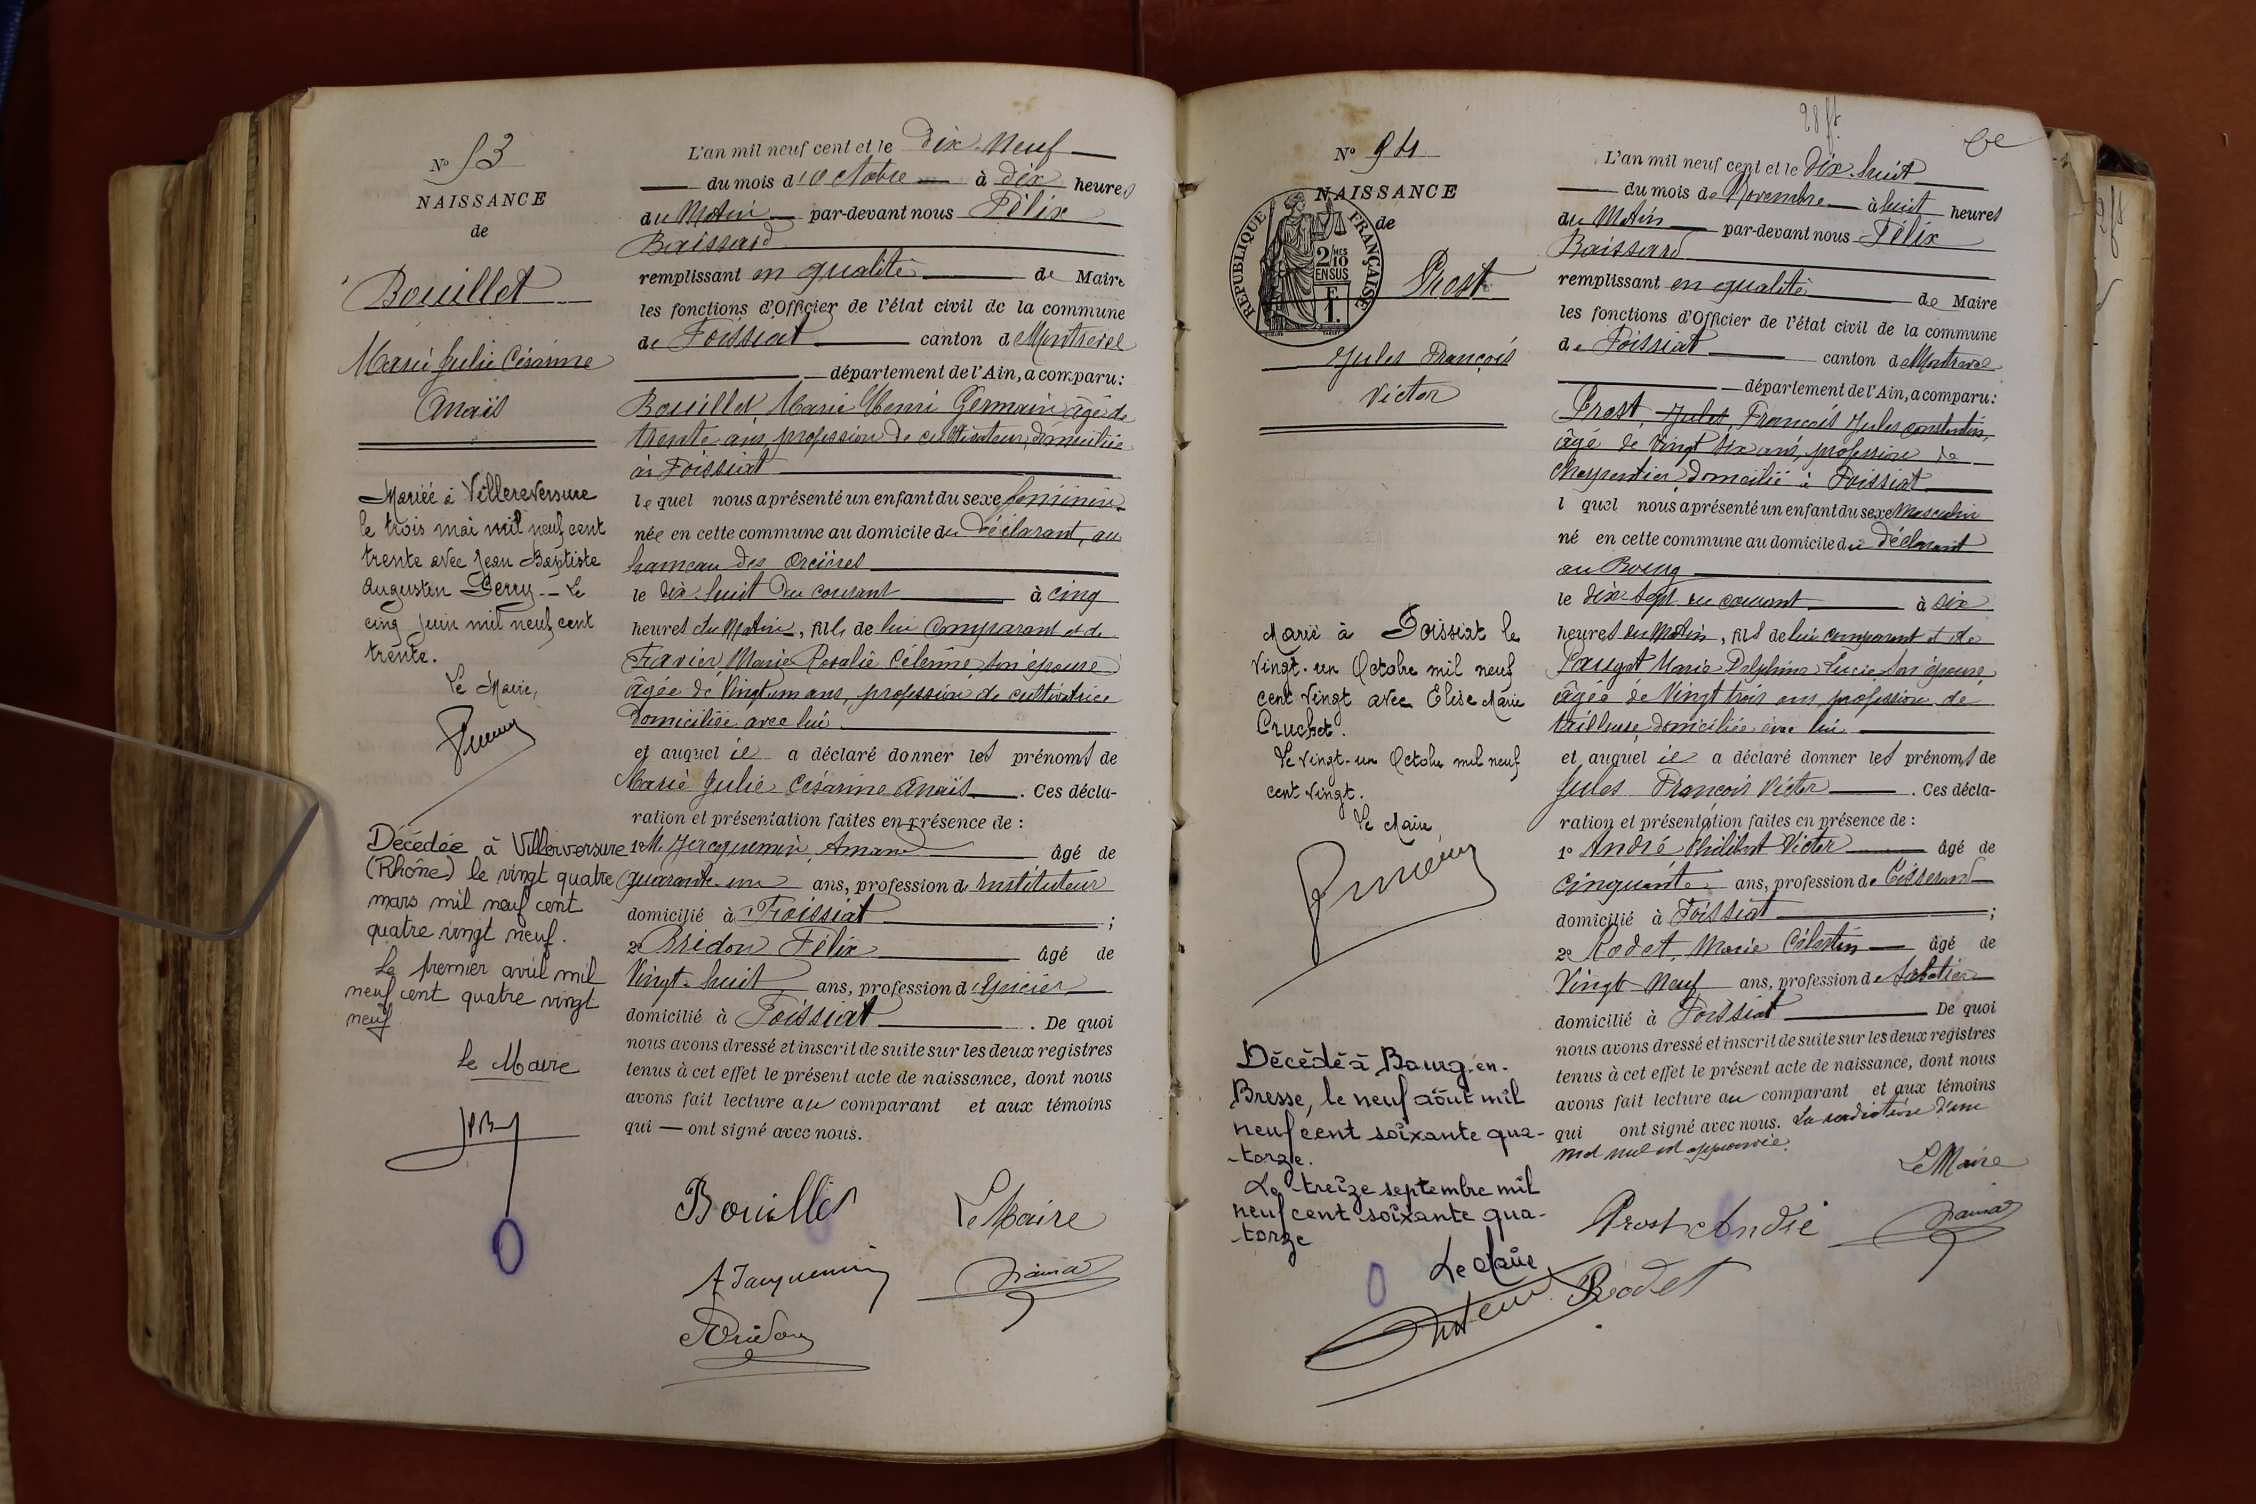 No 53
NAISSANCE
de
Bouillet
Marie Julie Césarine
Anaïs
Mariée à Villereversure
le trois mai mil neuf cent
trente avec Jean Baptiste
Augustin Perry _ Le
cinq juin mil neuf cent
trente.
Le Maire,
Décédée à Villereversure
(Rhône) le vingt quatre
mars mil neuf cent
quatre vingt neuf.
Le premier avril mil
neuf cent quatre vingt
neuf
Le Maire
L'an mil neuf cent et le dix-neuf
du mois d'octobre à dix heures
du Matin par-devant nous Félix
remplissant en qualité de Maire
les fonctions d'Officier de l'état civil de la commune
de Foissiat canton de Montrevel
département de l'Ain, a comparu:
Bouillet Marie Henri Germain âgé de
trente ans, profession de cultivateur, domicilié
à Foissiat
lequel nous a présenté un enfant du sexe féminin
née en cette commune au domicile du déclarant, au
hameau des Orcières
le dix-huit du courant à cinq
heures du Matin, fils de lui comparant et de
Marie Rosalie Célerine son épouse
âgée de vingt un ans, profession de cultivatrice
domiciliée avec lui
et auquel il a déclaré donner les prénoms de
Marie Julie Césarine Anaïs. Ces décla-
ration et présentation faites en présence de :
1e M. Jacquemin, Amand âgé de
quarante-un ans, profession d'instituteur
domicilié à Foissiat ;
2e Bridon Félix âgé de
vingt-huit ans, profession d'épicier
domicilié à Foissiat. De quoi
nous avons dressé et inscrit de suite sur les deux registres
tenus à cet effet le présent acte de naissance, dont nous
avons fait lecture au comparant et aux témoins
qui — ont signé avec nous.
Bouillet Le Maire
A Jacquemin
Bridon
28 ft
No 54
NAISSANCE
de
RÉPUBLIQUE FRANÇAISE
2/10 EN SUS
F 1.
Prost
Jules François
Victor
Marié à Foissiat le
vingt-un Octobre mil neuf
cent vingt avec Elise Marie
Cruchet.
Le vingt-un Octobre mil neuf
cent vingt.
Le Maire,
Décédé à Bourg-en-
Bresse, le neuf août mil
neuf cent soixante qua-
-torze.
Le treize septembre mil
neuf cent soixante qua-
-torze
Le Maire
L'an mil neuf cent et le dix-huit
du mois de Novembre à huit heures
du Matin par-devant nous Félix
remplissant en qualité de Maire
les fonctions d'Officier de l'état civil de la commune
de Foissiat canton de Montrevel
département de l'Ain, a comparu:
Prost, Jules, François Jules Constantin,
âgé de vingt six ans, profession de
charpentier domicilié à Foissiat
l quel nous a présenté un enfant du sexe Masculin
né en cette commune au domicile du déclarant
au Bourg
le dix-sept du courant à six
heures du Matin, fils de lui comparant et de
Pauget Marie Delphine Lucie son épouse
âgée de vingt trois ans profession de
tailleuse domiciliée avec lui
et auquel il a déclaré donner les prénoms de
Jules François Victor. Ces décla-
ration et présentation faites en présence de :
1o André Philibert Victor âgé de
cinquante ans, profession de tisserand
domicilié à Foissiat ;
2e Rodet, Marie Célestin âgé de
vingt-neuf ans, profession de sabotier
domicilié à Foissiat De quoi
nous avons dressé et inscrit de suite sur les deux registres
tenus à cet effet le présent acte de naissance, dont nous
avons fait lecture au comparant et aux témoins
qui ont signé avec nous. La radiation d'un
mot nul est approuvée.
Le Maire
Prost André
Rodet